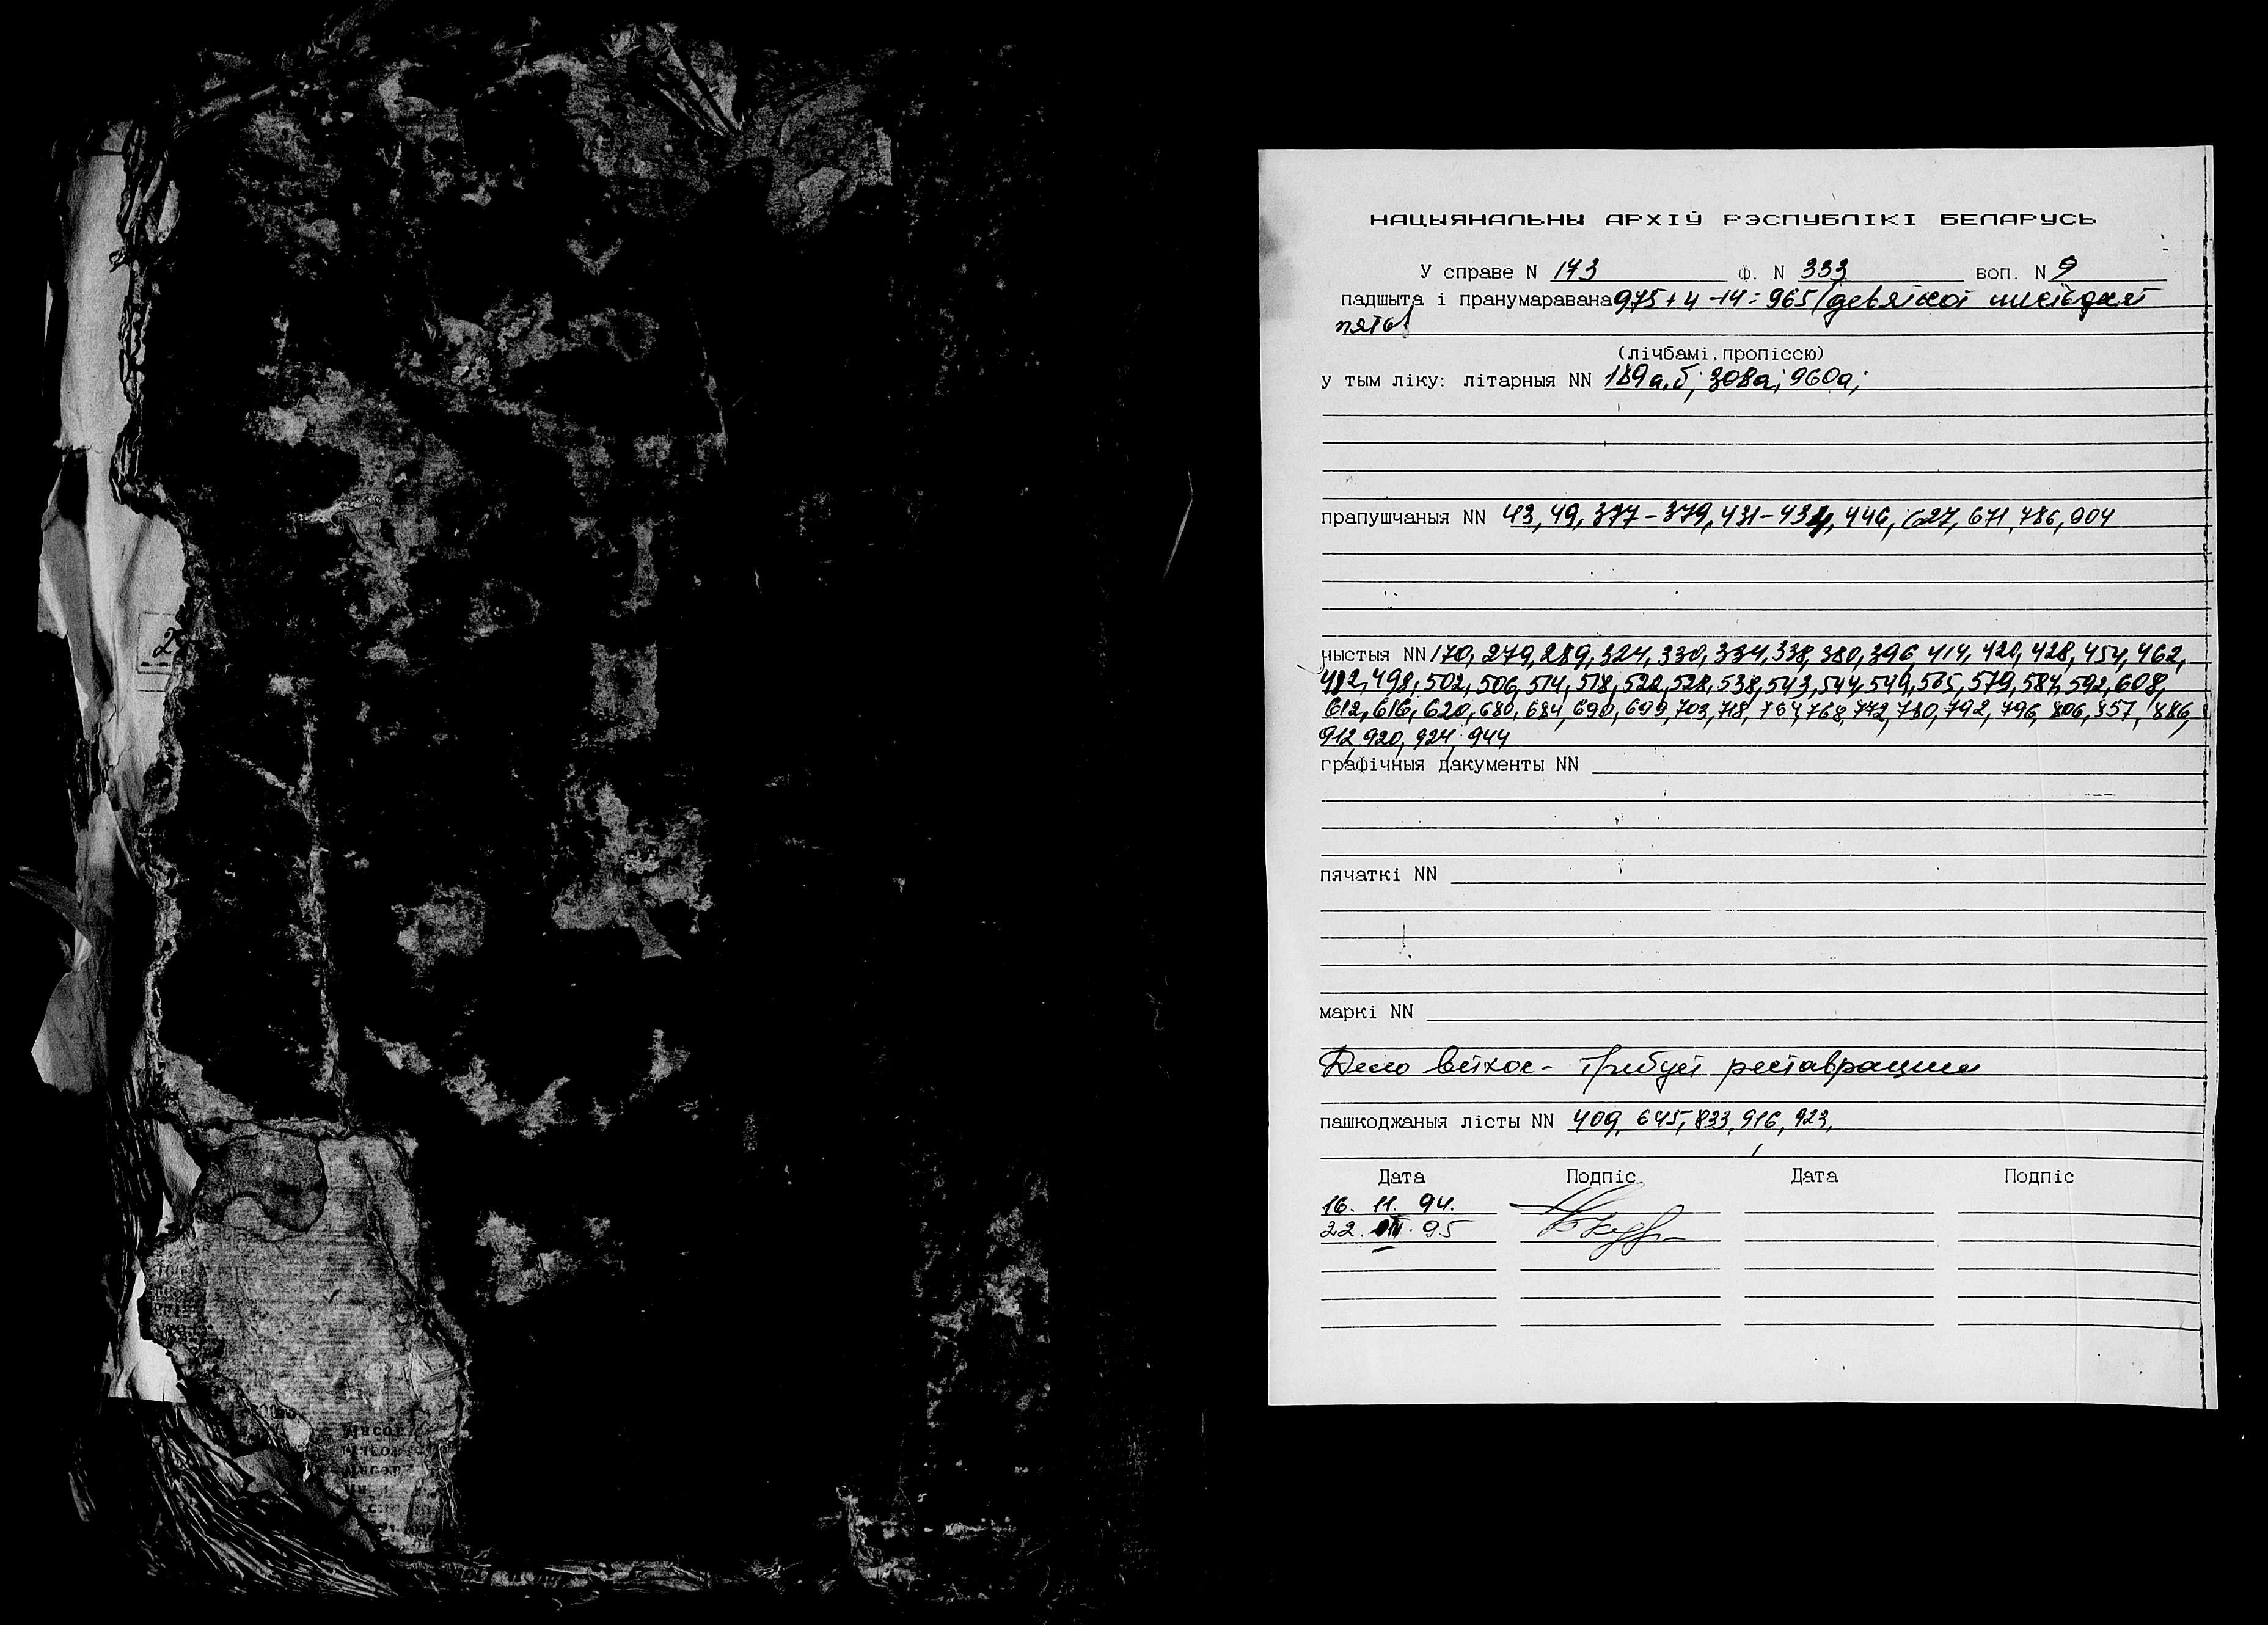 2
НАЦЫЯНАЛЬНЫ АРХІЎ РЭСПУБЛІКІ БЕЛАРУСЬ
У справе N 173 Ф. N 333 воп. N 9
падшыта і пранумаравана 975+4-14=965 (девятсот шестьдесят
пять)
(лічбамі, пропіссю)
у тым ліку: літарныя NN 189а,б; 308а; 960а;
прапушчаныя NN 43, 49, 377-379, 431-434, 446, 627, 671, 786, 904
чыстыя NN 170, 279, 289, 324, 330, 334, 338, 380, 396, 414, 420, 428, 454, 462,
498, 502, 506, 514, 518, 522, 528, 538, 543, 544, 549, 565, 579, 584, 592, 608,
612, 616, 620, 680, 684, 690, 699, 703, 718, 764, 768, 772, 780, 792, 796, 806, 857, 886,
912, 920, 924, 944
графічныя дакументы NN
пячаткі NN
маркі NN
Дело ветхое - требует реставрации
пашкоджаныя лісты NN 409, 645, 833, 916, 923,
Дата Подпіс Дата Подпіс
16. 11. 94.
22. 95